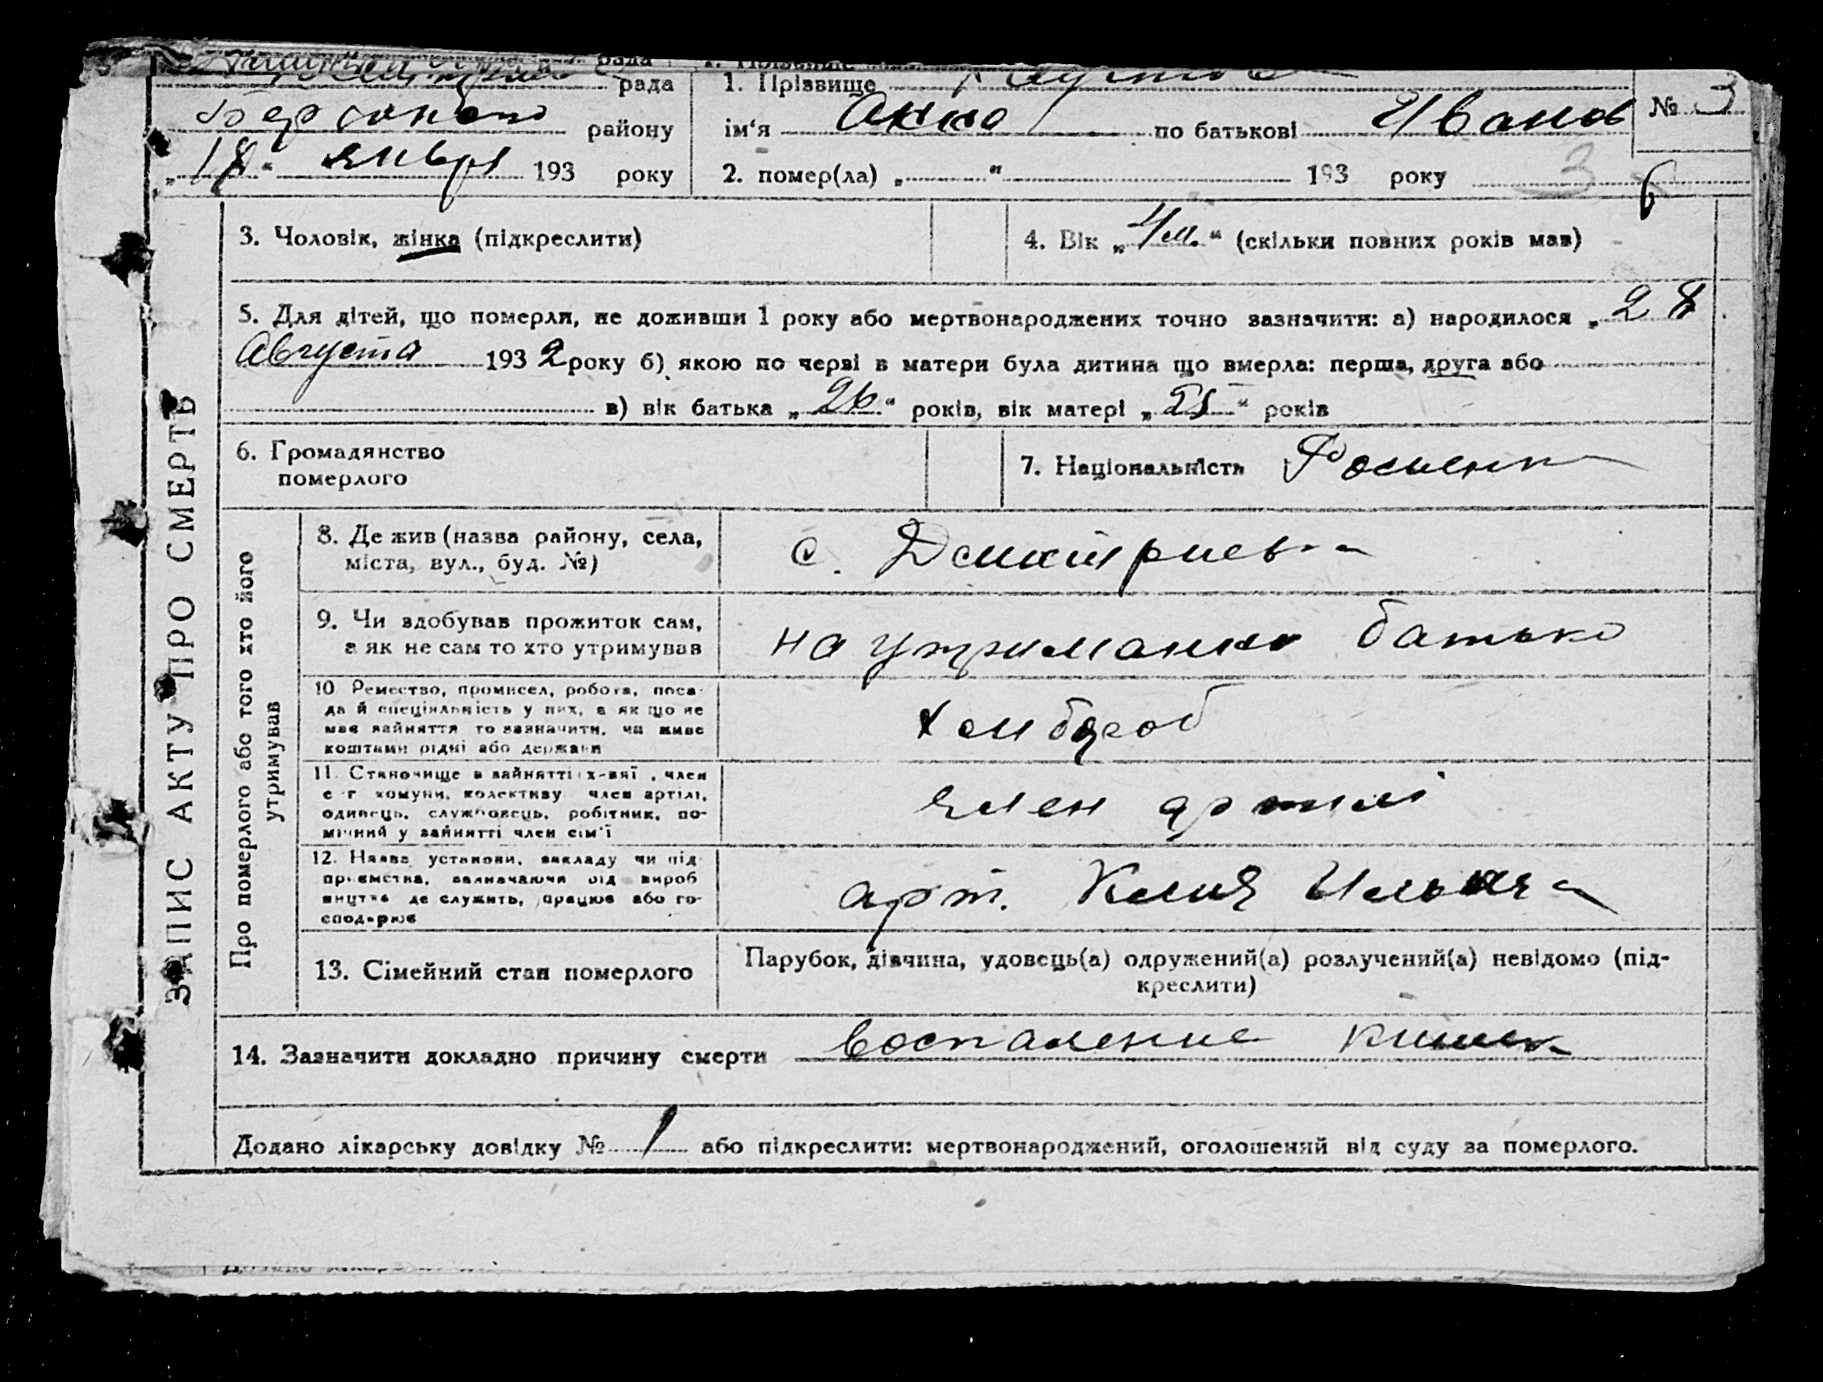 рада 1. Прізвище
Бердянського району ім'я Анна по батькові Иванов № 3
„18“ январ 193 року 2. помер(ла) „ “ 193 року 3
6
3. Чоловік, жінка (підкреслити) 4. Вік „4 м.“ (скільки повних років мав)
5. Для дітей, що померли, не доживши 1 року або мертвонароджених точно зазначити: а) народилося „28
Августа 1932 року б) якою по черві в матери була дитина що вмерла: перша, друга або
в) вік батька „26“ років, вік матері „25“ років
6. Громадянство
померлого
7. Національність
ЗАПИС АКТУ ПРО СМЕРТЬ
Про померлого або того хто його
утримував
8. Де жив (назва району, села,
міста, вул., буд. №)
с. Дмитриевка
9. Чи здобував прожиток сам,
а як не сам то хто утримував
на утриманні батька
10 Ремество, промисел, робота, поса-
да й спеціяльність у них, а як що не
має зайняття то зазначити, чи живе
коштами рідні або держави
хлібороб
11. Становище в зайнятті , член
с-г комуни, колективу член артілі,
одинець, службовець, робітник, по-
мічний у зайнятті член сім'ї
член артілі
12. Назва установи, закладу чи під-
приємства, зазначаючи від вироб
ництва де служить, працює або го-
сподарює
арт. Ильича
13. Сімейний стан померлого
Парубок, дівчина, удовець(а) одружений(а) розлучений(а) невідомо (під-
креслити)
14. Зазначити докладно причину смерти воспаление кишек
Додано лікарську довідку № 1 або підкреслити: мертвонароджений, оголошений від суду за померлого.